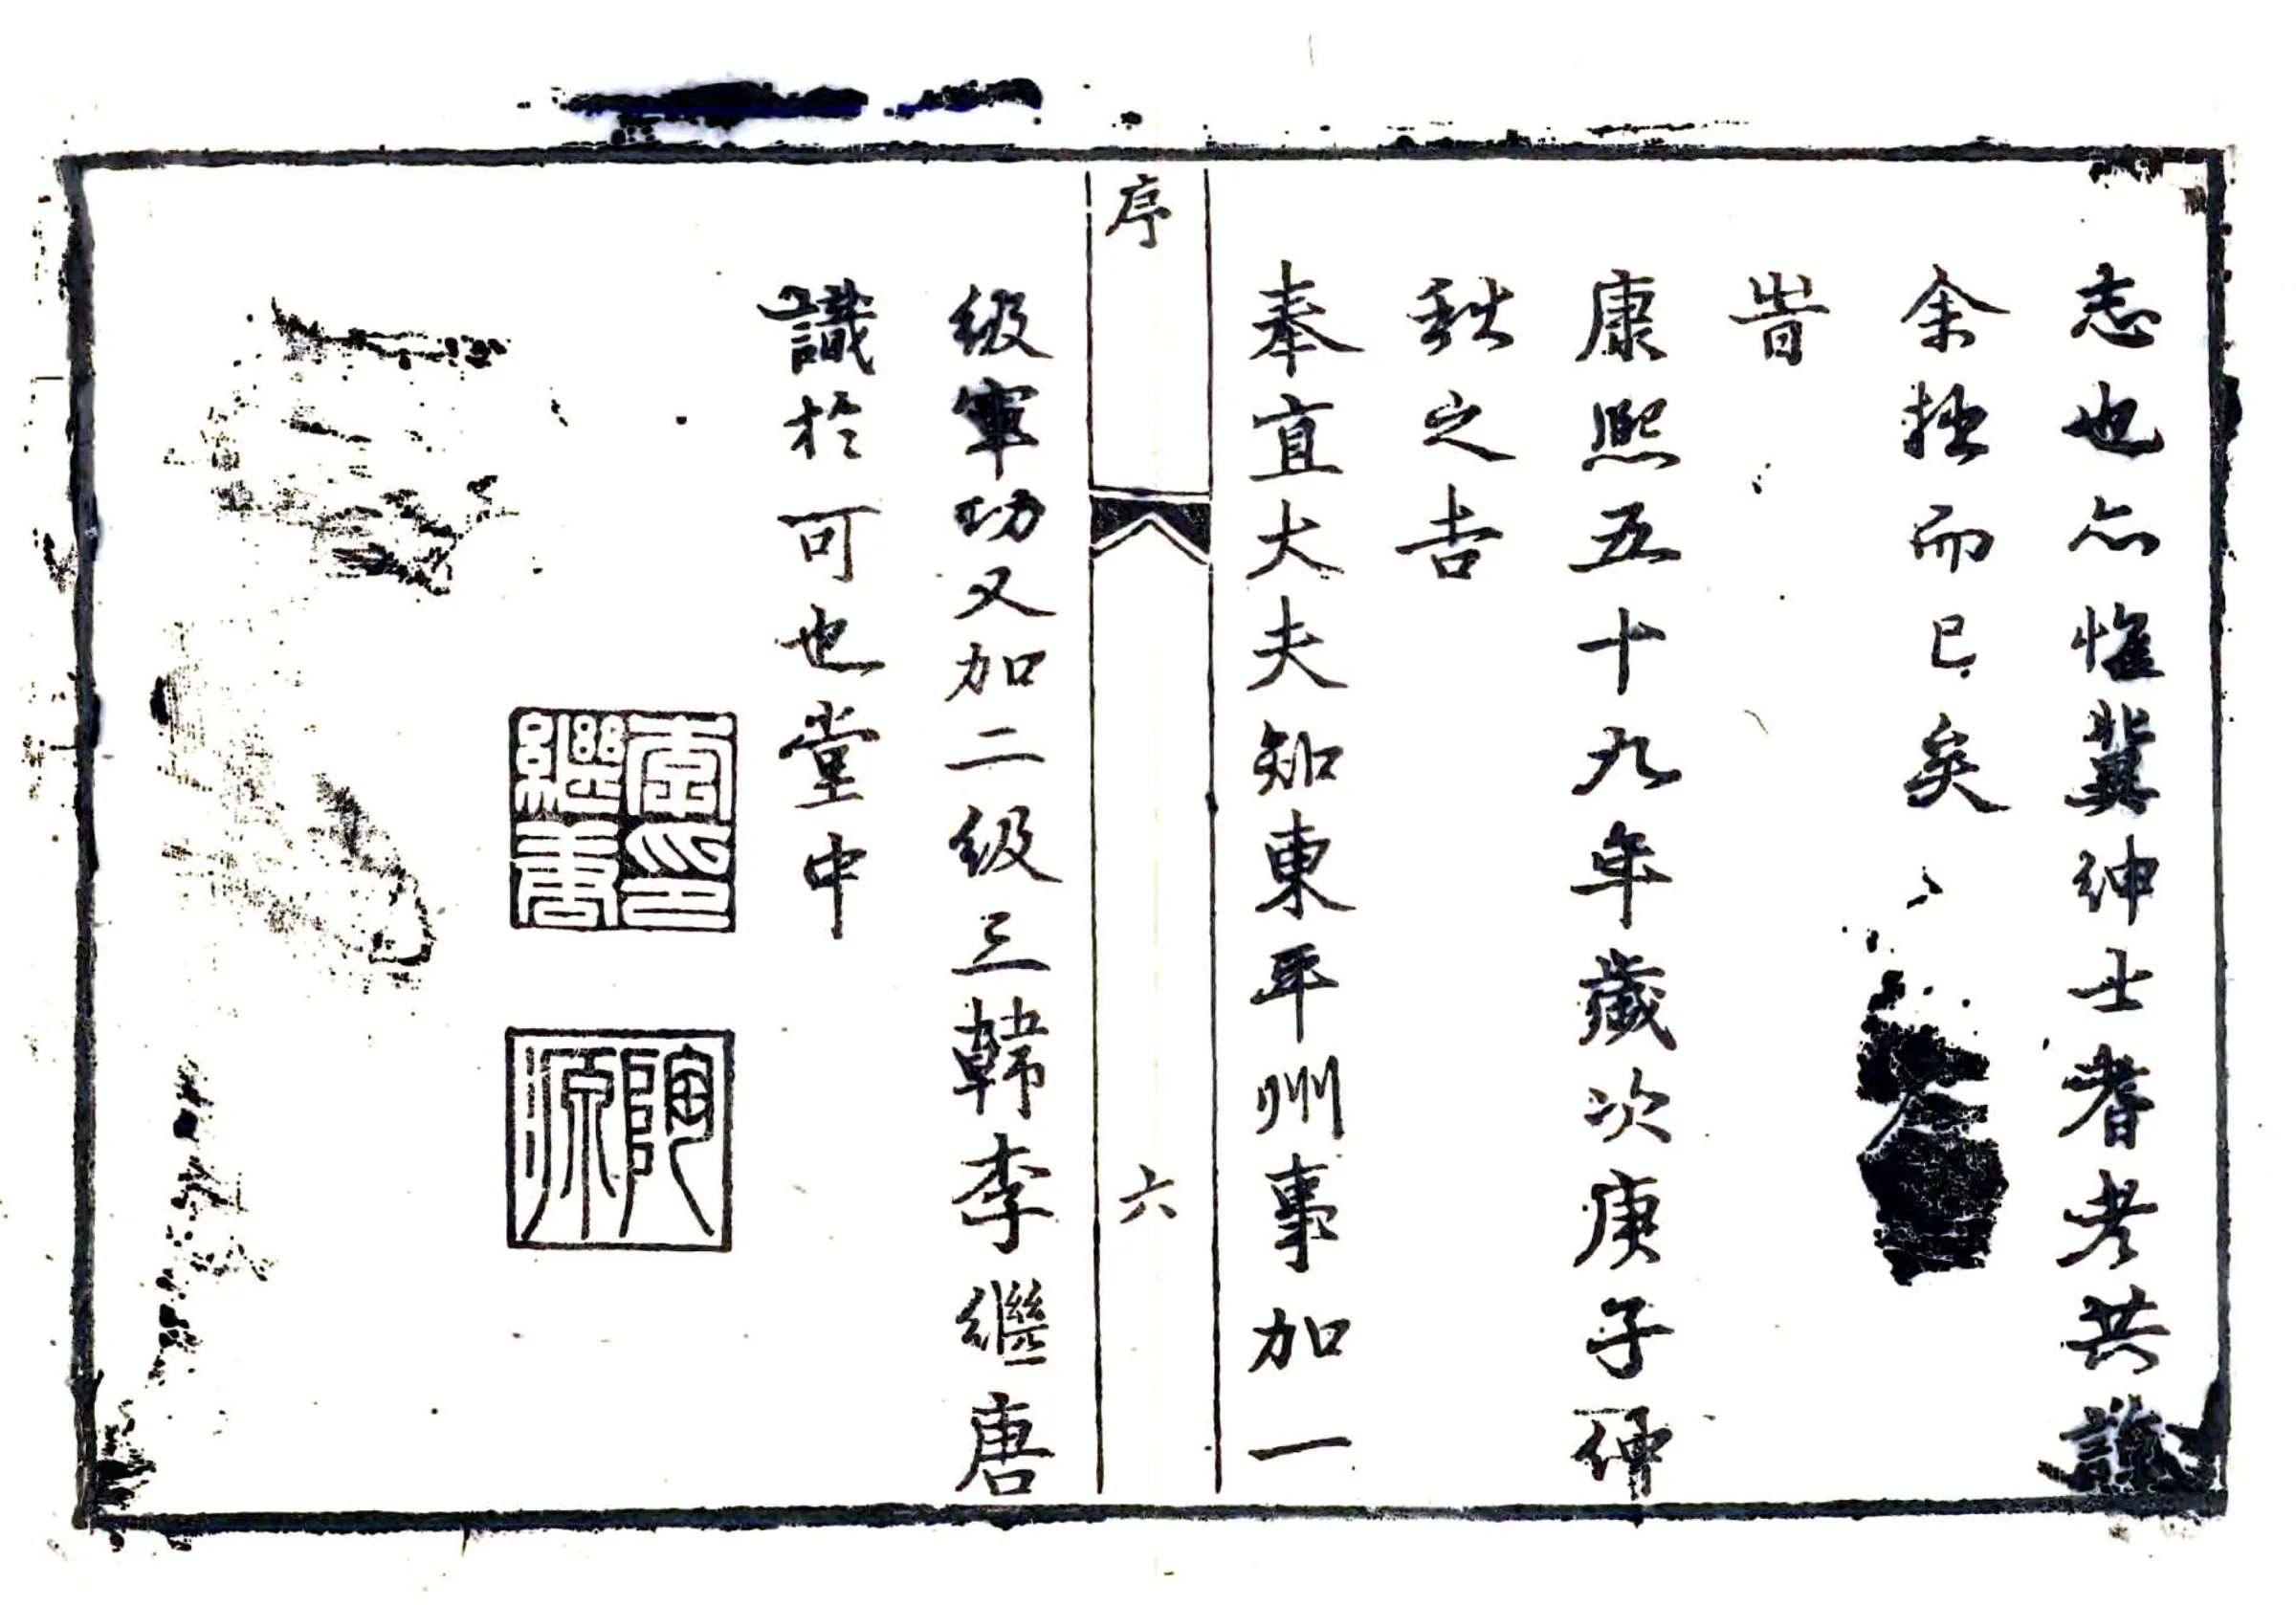 志也亦惟冀紳士耆老共諒
余拙而已矣
旹
康熙五十九年歲次庚子仲
秋之吉
奉直大夫知東平州事加一
序
六
級軍功又加二級三韓李繼唐
識於可也堂中
李印繼唐
陶源